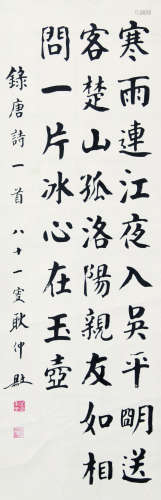 寒雨連江夜入吳平明送
客楚山孤洛陽親友如相
問一片冰心在玉壺
錄唐詩一首 八十一叟耿仲敭